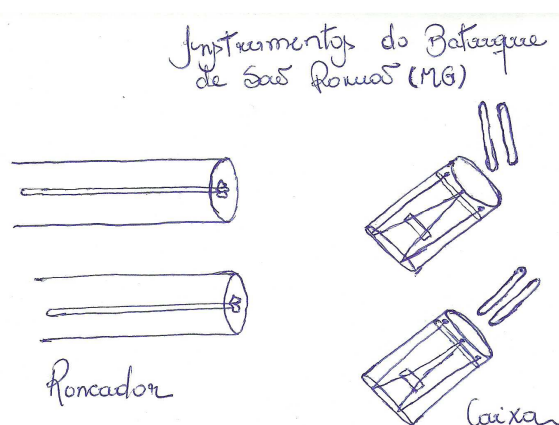 Instrumentos do Batuque
de São Romão (MG)
Roncador
Caixa